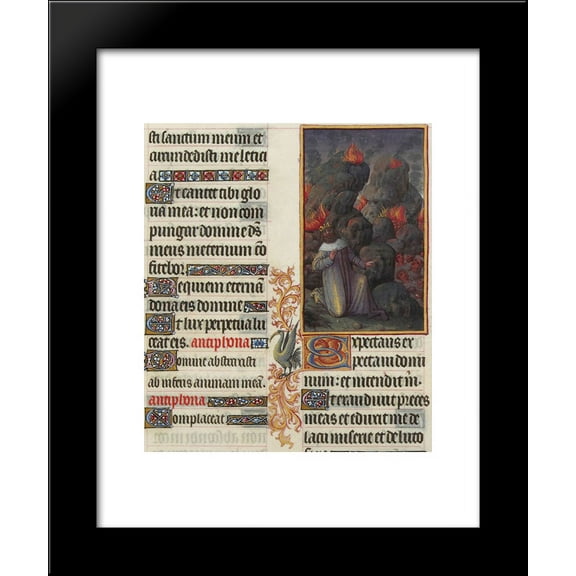 sti sanctum meum et
circundedisti me leticia
a
Ut cantet tibi glo
ria mea: et non com
pungar domine d̄s
meus in eternum cō
fitebor
Requiem eternā
dona eis domine
Et lux perpetua lu
ceat eis. antiphona
Domine abstraxisti
ab inferis animam meā.
antiphona
Complaceat
Expectans ex
pectaui domi
num: et intendit m̄
Et exaudiuit preces
meas et eduxit me de
lacu miserie et de luto